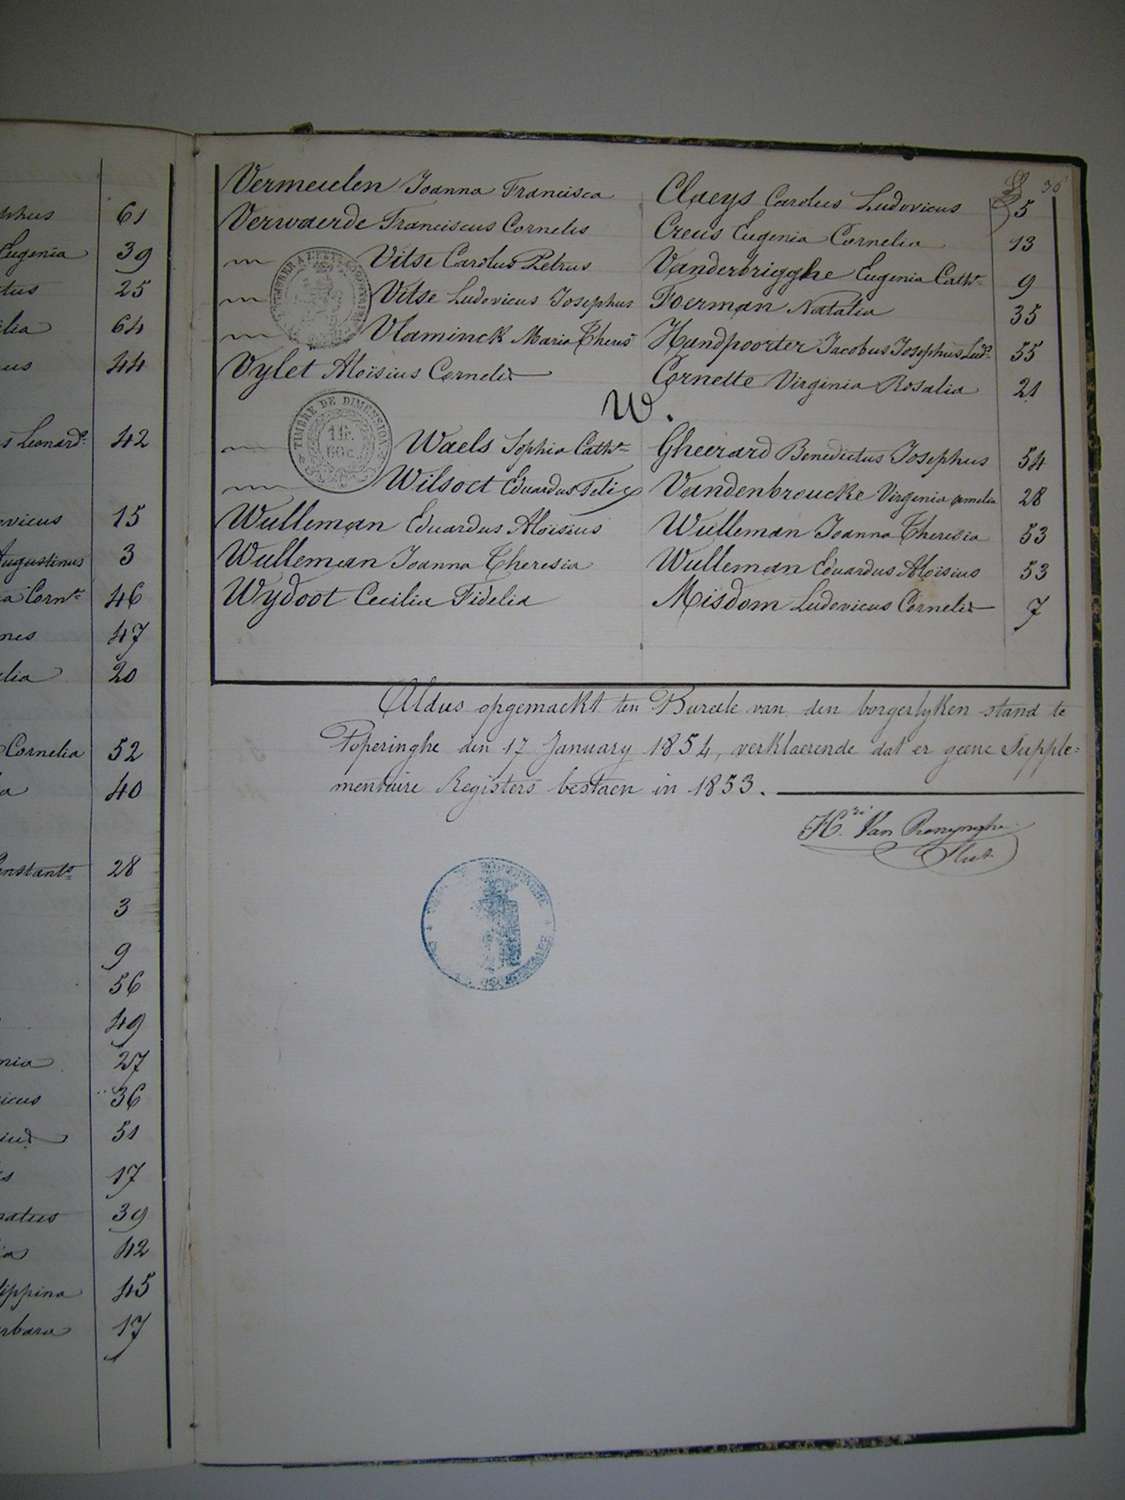 phus 61
Eugenia 39
tus 25
ilia 64
us 44
s Leonard.s 42
ovicus 15
Augustinus 3
ia Corn.a 46
nes 47
elia 20
Cornelia 52
a 40
Constant.a 28
3
9
56
49
nia 27
icus 36
51
s 17
natus 39
ia 42
lippina 45
rbara 17
36
Vermeulen Joanna Francisca Claeys Carolus Ludovicus 5
Verwaerde Franciscus Cornelis Creus Eugenia Cornelia 13
Vitse Carolus Petrus Vanderbrigghe Eugenia Cath.a 9
Vitse Ludovicus Josephus Foerman Natalia 35
Vlaminck Maria Theres.a Handpoorter Jacobus Josephus Lud.s 55
Vylet Aloïsius Cornelis Cornette Virginia Rosalia 21
W.
TIMBRE DE DIMENSION
1 fr.
60 c.
Waels Sophia Cath.a Gheerard Benedictus Josephus 54
Wilsoct Eduardus Felix Vandenbroucke Virginia Amelia 28
Wulleman Eduardus Aloïsius Wulleman Joanna Theresia 53
Wulleman Joanna Theresia Wulleman Eduardus Aloïsius 53
Wydoot Cecilia Fidelia Misdom Ludovicus Cornelis 7
Aldus opgemaekt ten Bureele van den borgerlyken stand te
Poperinghe den 17 January 1854, verklaerende dat er geene Supple=
mentaire Registers bestaen in 1853.
H.ri Van Renynghe